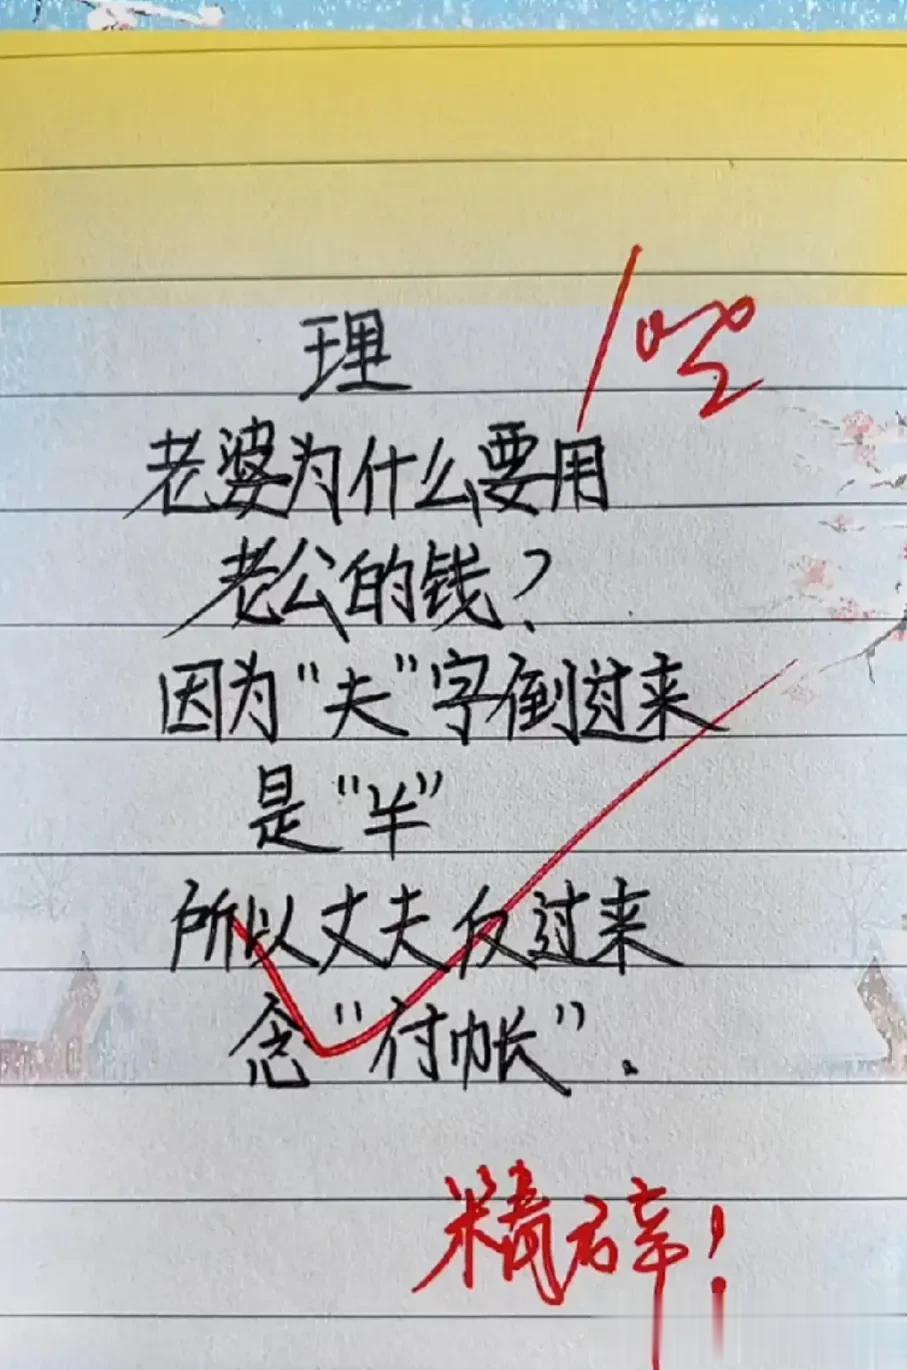 理
100
老婆为什么要用
老公的钱？
因为“夫”字倒过来
是“半”
所以丈夫反过来
念“付帐”.
精辟!